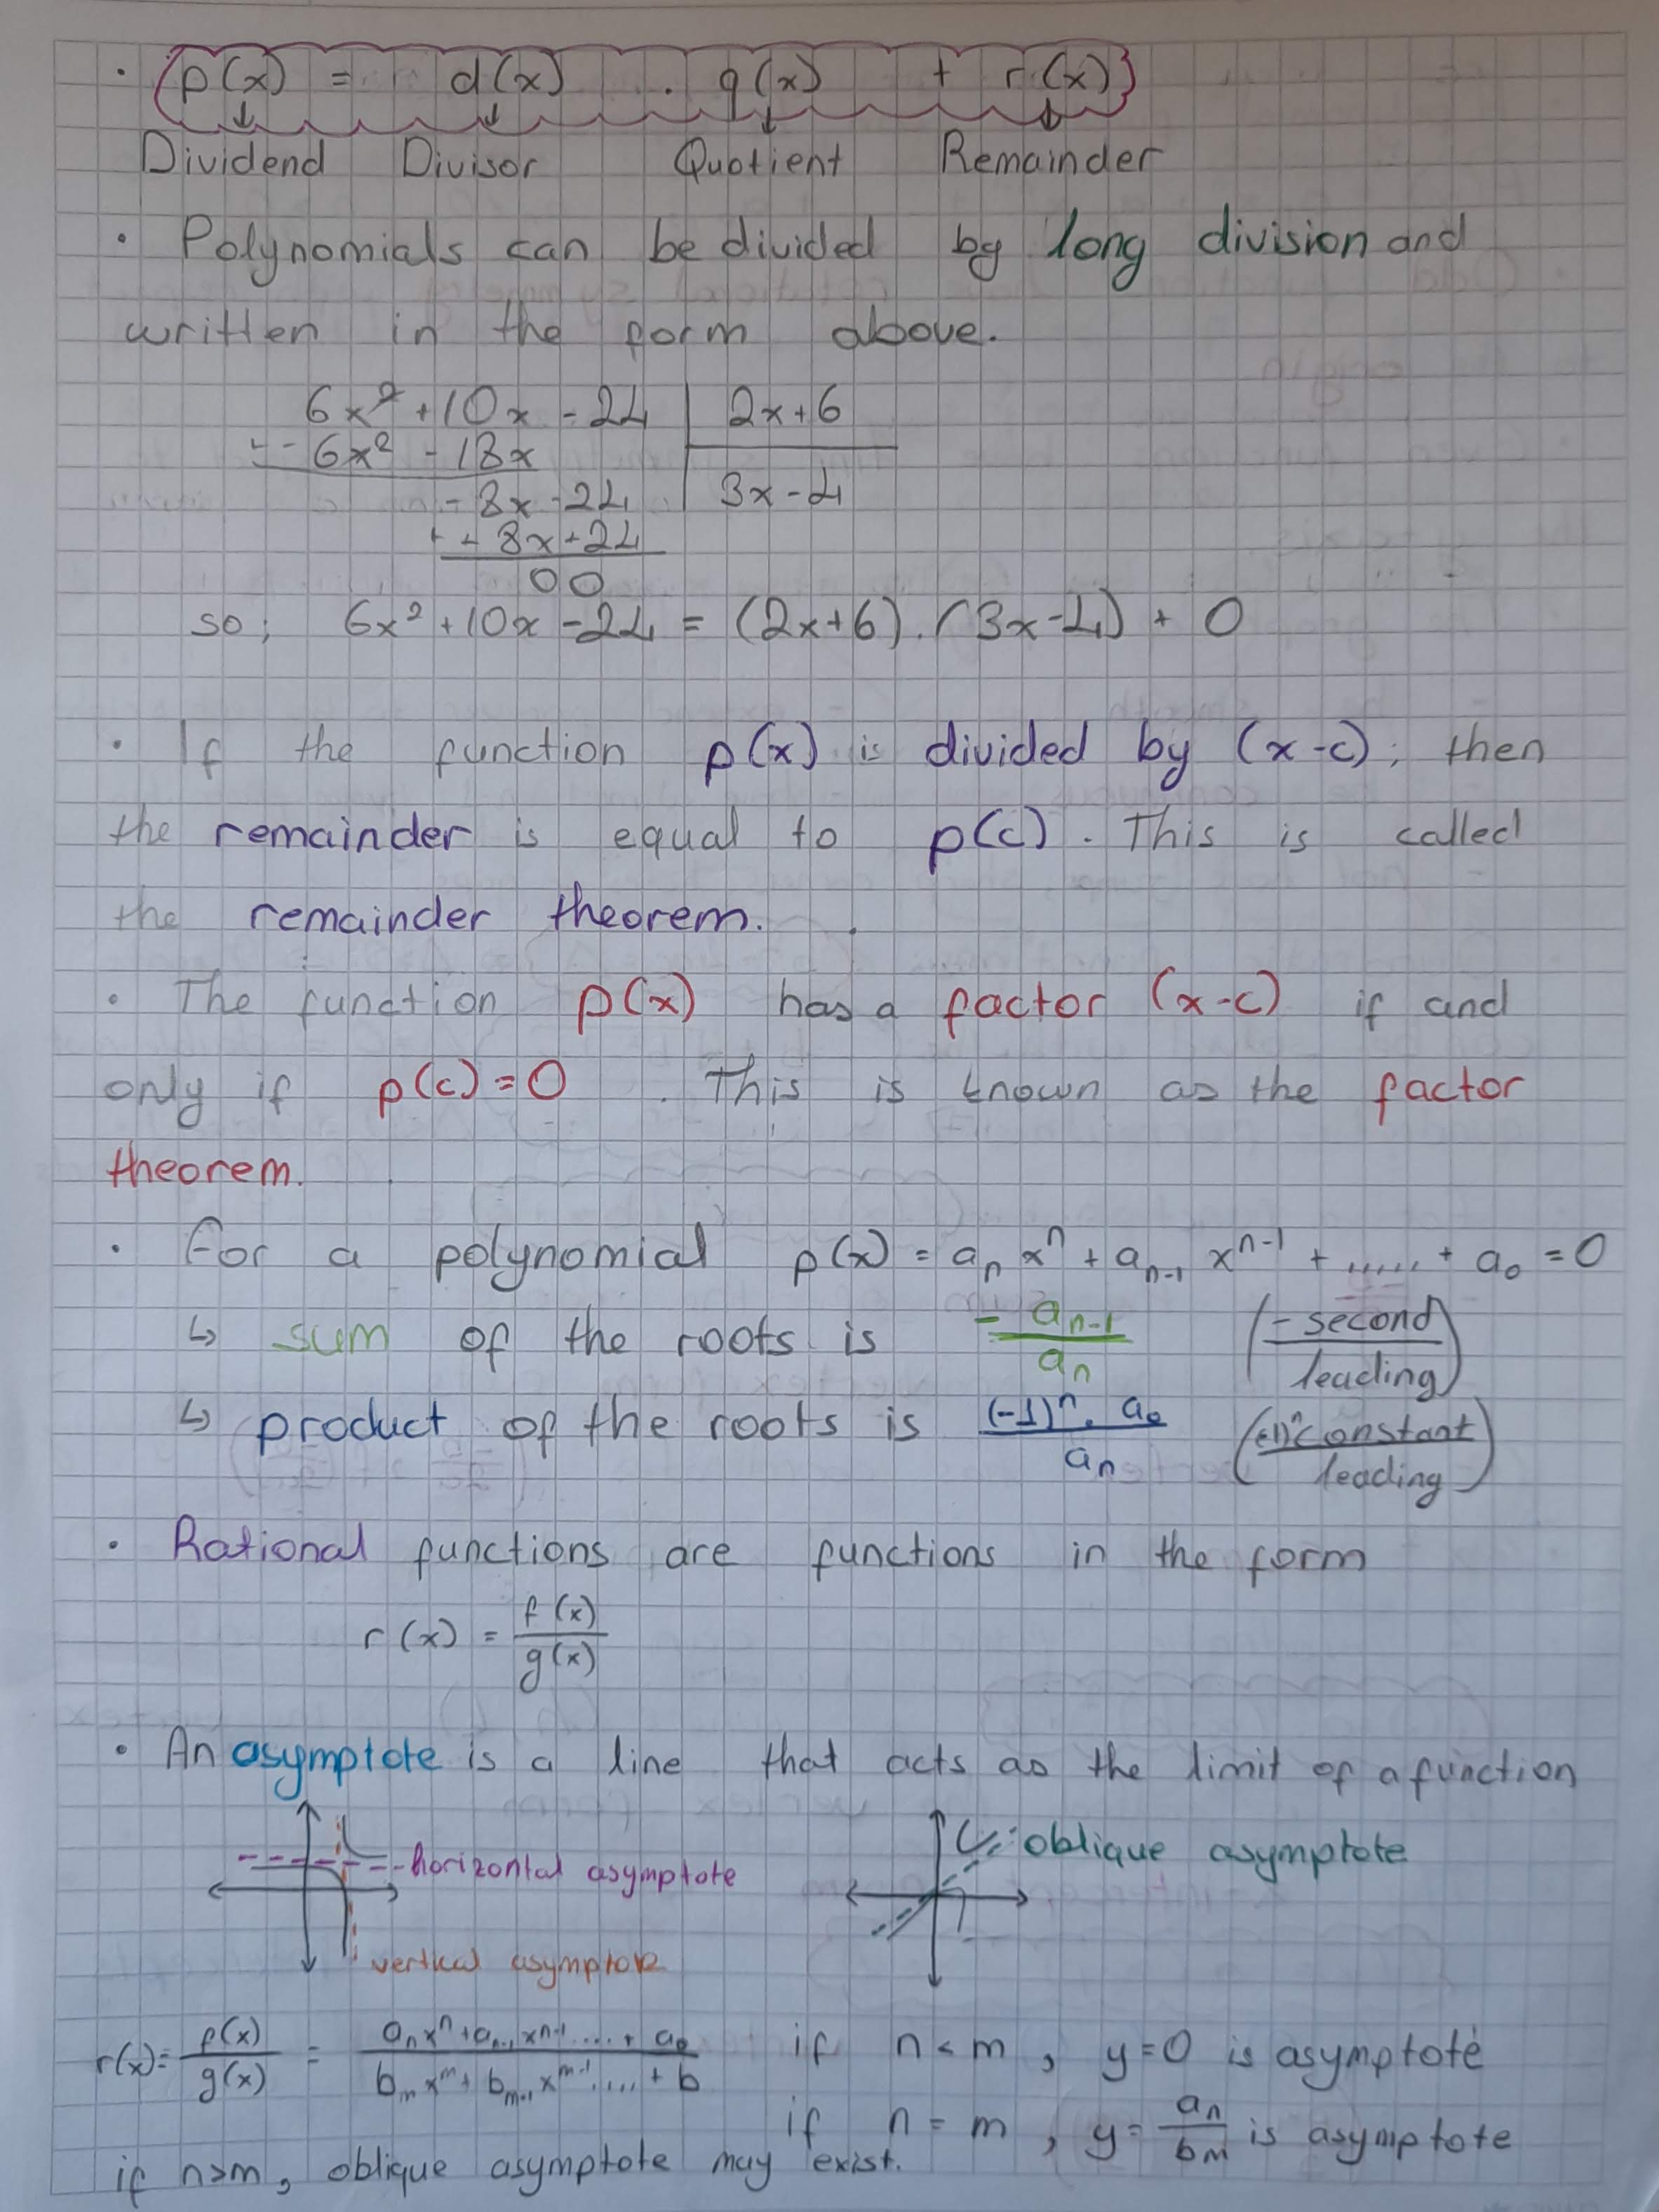 • p(x) = d(x) . q(x) + r(x)
↓ ↓ ↓ ↓
Dividend Divisor Quotient Remainder
• Polynomials can be divided by long division and
written in the form above.
6x² + 10x - 24 | 2x+6
-- 6x² - 18x
- 8x - 24 | 3x-4
+ + 8x + 24
00
so; 6x² + 10x - 24 = (2x+6) . (3x-4) + 0
• If the function p(x) is divided by (x-c); then
the remainder is equal to p(c). This is called
the remainder theorem.
• The function p(x) has a factor (x-c) if and
only if p(c)=0. This is known as the factor
theorem.
• For a polynomial p(x) = aₙ xⁿ + aₙ₋₁ xⁿ⁻¹ + ..... + a₀ = 0
↳ sum of the roots is - aₙ₋₁ / aₙ (- second / leading)
↳ product of the roots is (-1)ⁿ . a₀ / aₙ ((-1)ⁿ constant / leading)
• Rational functions are functions in the form
r(x) = f(x) / g(x)
• An asymptote is a line that acts as the limit of a function
oblique asymptote
horizontal asymptote
vertical asymptote
r(x) = f(x) / g(x) = aₙxⁿ + aₙ₋₁xⁿ⁻¹ .... + a₀ / bₘxᵐ + bₘ₋₁xᵐ⁻¹ .... + b if n < m, y=0 is asymptote
if n = m, y = aₙ / bₘ is asymptote
if n>m, oblique asymptote may exist.